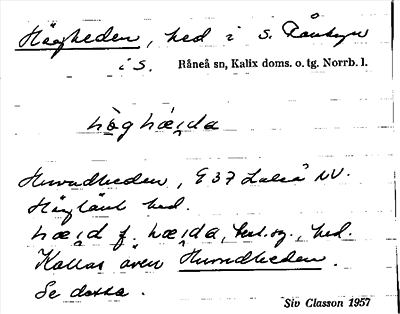 Högheden, hed i S. Råneby
i S. Råneå sn, Kalix doms. o. tg. Norrb. l.
hög hæida
Huvudheden, G 37 Luleå NV.
Höglänt hed.
hæid f. hæida, best. sg., hed.
Kallas även Huvudheden.
Se dessa.
Siv Classon 1957